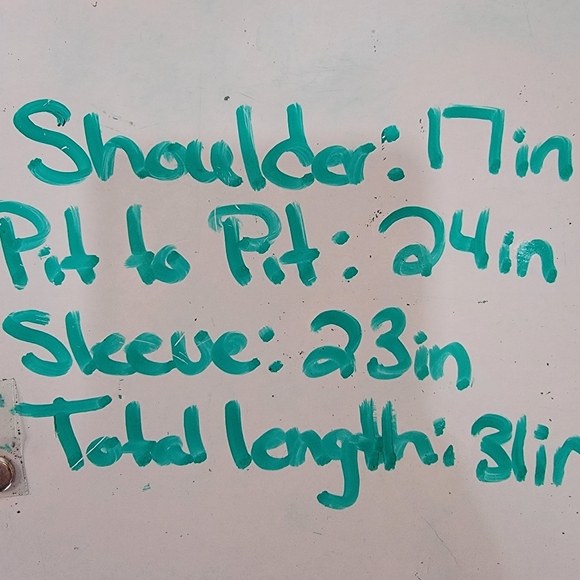 Shoulder: 17in
Pit to Pit: 24in
Sleeve: 23in
Total length: 31in